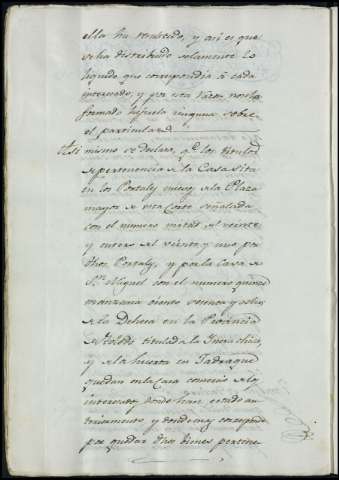 ella ha rendido, y asi es que
se ha distribuido solamente lo
liquido que correspondia á cada
interesado, y por esta razon no se ha
formado hijuela ninguna sobre
el particular
Asi mismo se declara, qe. los titulos
de pertenencia de la Casa sita
en los Portales nuevos de la Plaza
mayor de esta Corte señalada
con el numero mitad del veinte
y entero del veinte y uno por
dhos Portales, y por la Cava de
Sn. Miguel con el numero quince
manzana ciento
de la Dehesa en la Provincia
de Toledo titulada la
y de la huerta en Jadraque
quedan en la Casa comercio de los
interesados donde han estado an-
teriormente, y donde corresponde
por quedar dhos bienes